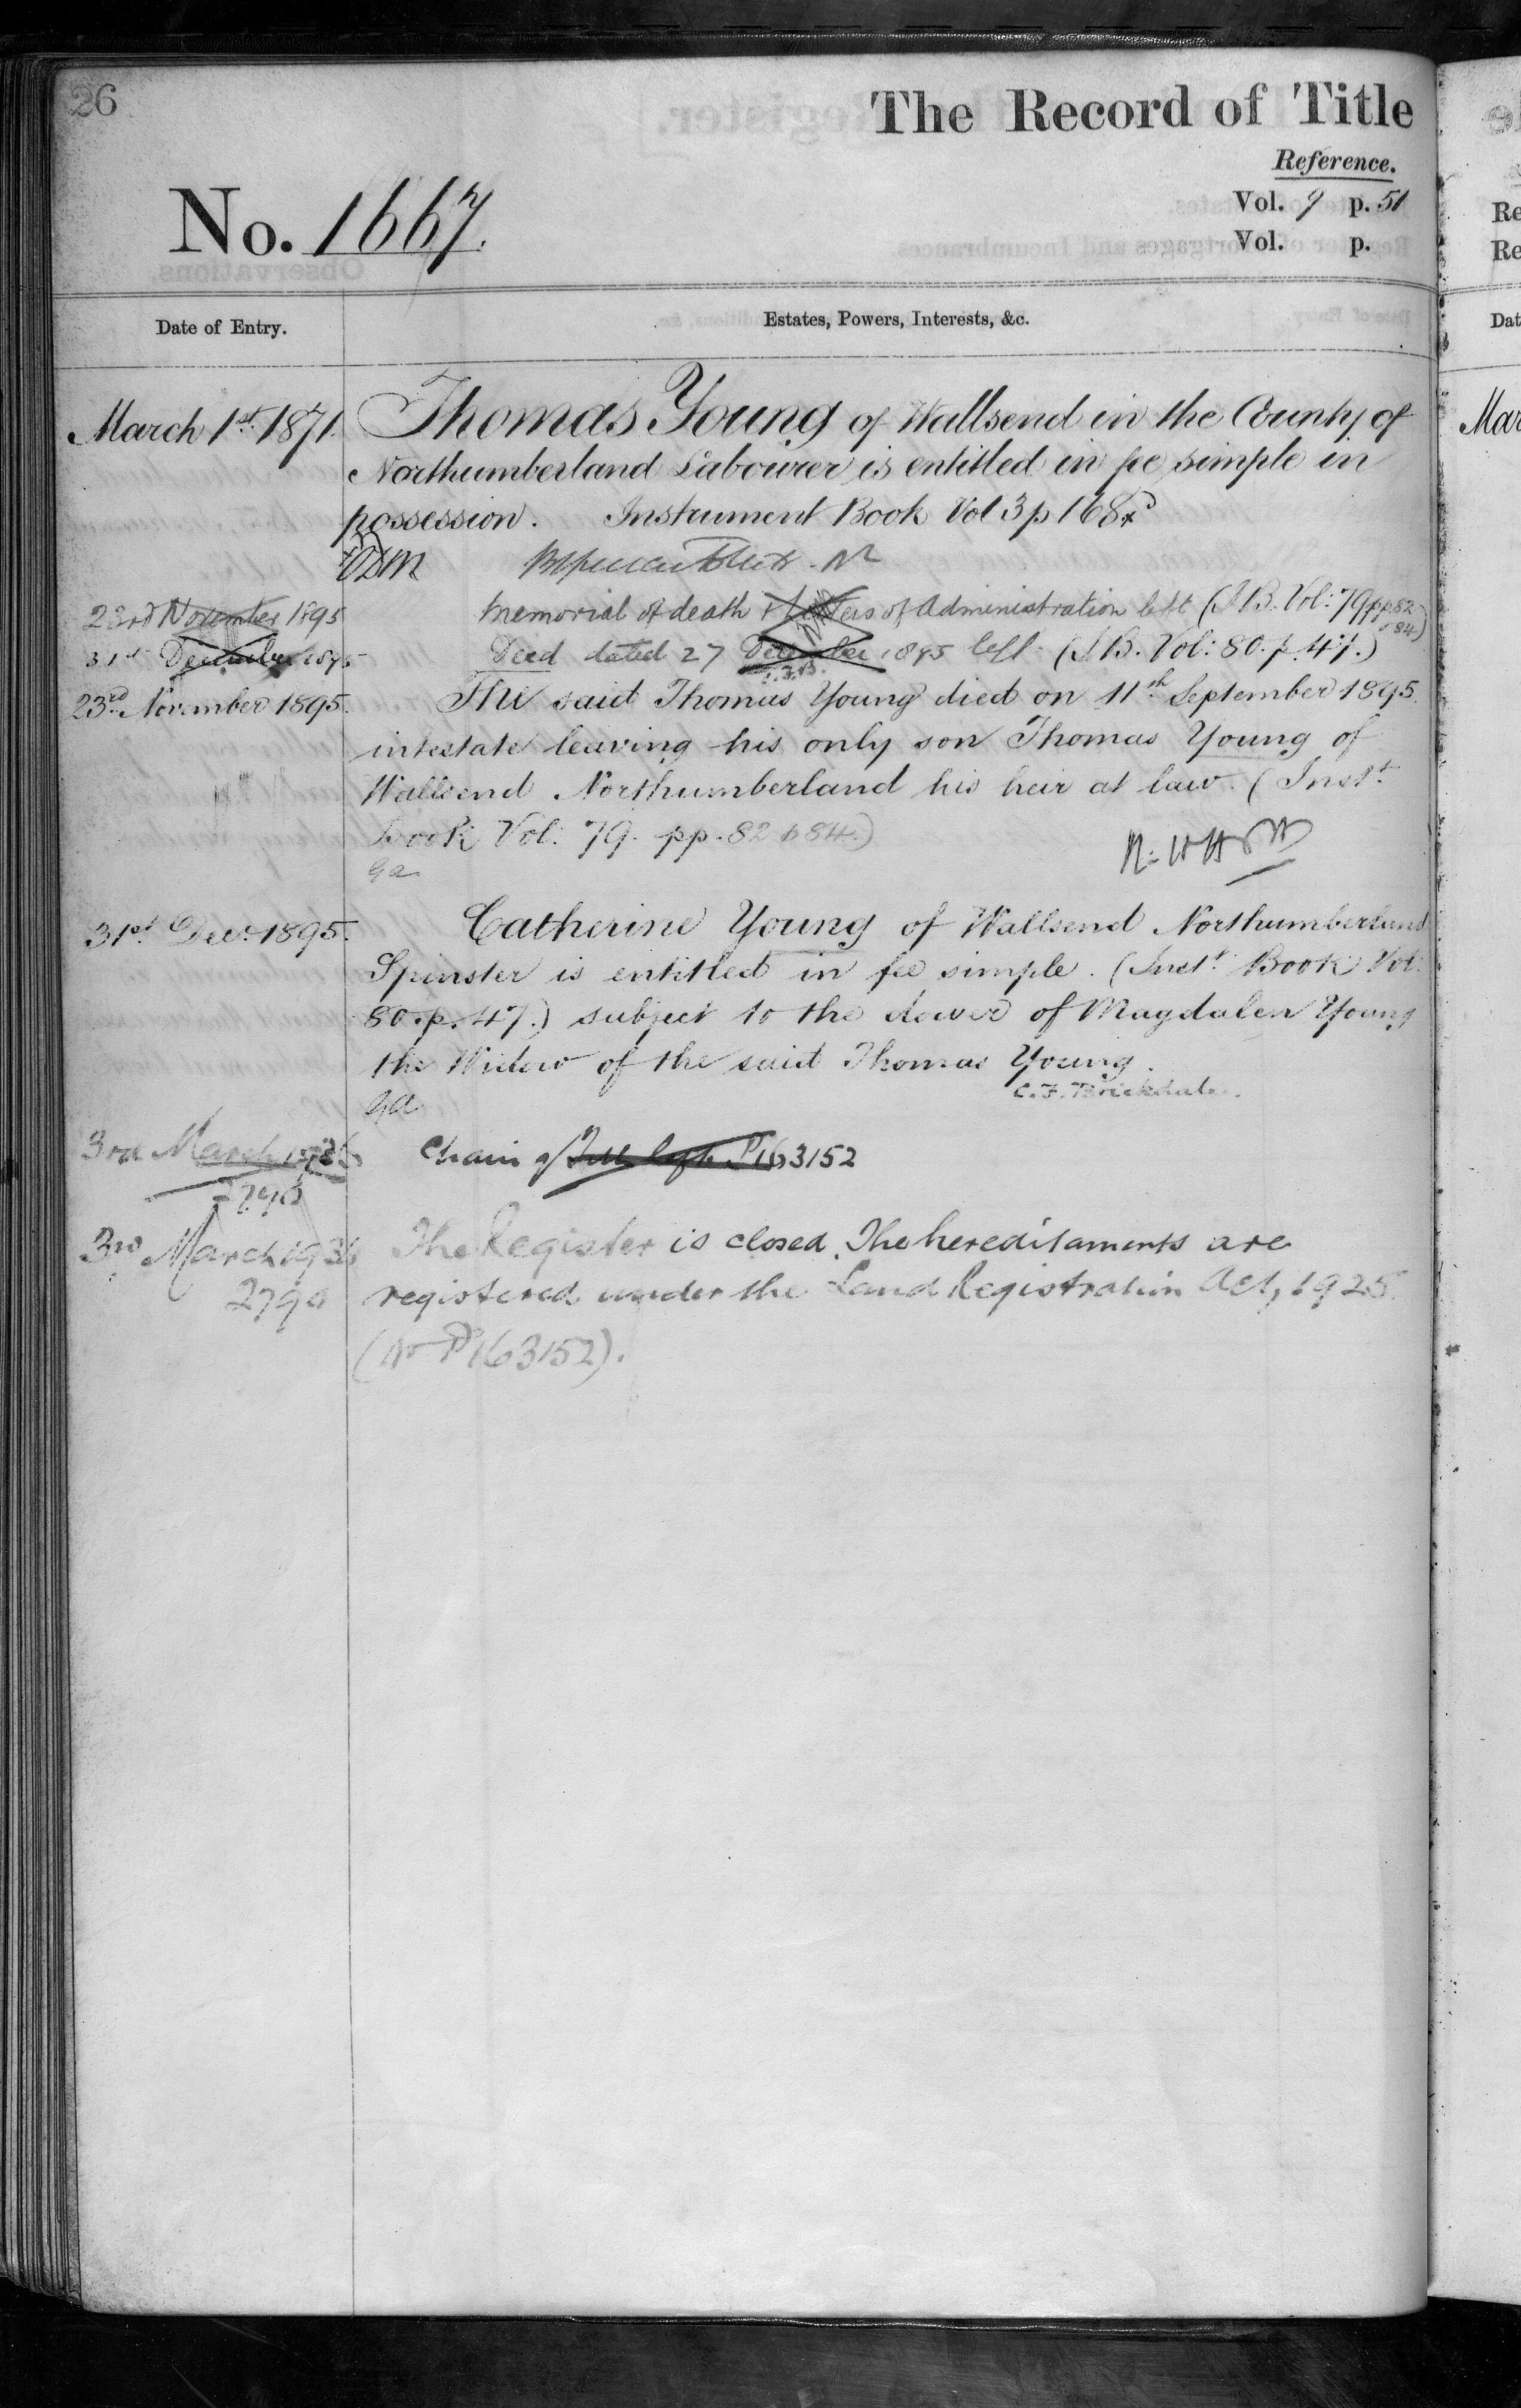 26
The Record of Title
Reference.
No. 1667.
Vol. 9 p. 51
Vol. p.
Date of Entry.
Estates, Powers, Interests, &c.
March 1st 1871.
Thomas Young of Wallsend in the County of
Northumberland Labourer is entitled in fee simple in
possession. Instrument Book Vol 3 p 168
23rd November 1895
Memorial of death & Letters of Administration left (I.B. Vol: 79 pp. 82
84)
31st December 1895
Deed dated 27 December 1895 left (I.B. Vol: 80. p. 47.)
C.F.B.
23rd November 1895.
The said Thomas Young died on 11th September 1895.
intestate leaving his only son Thomas Young of
Wallsend Northumberland his heir at law. (Inst.t
book Vol: 79. pp. 82 to 84.)
Ga
31st Decr. 1895.
Catherine Young of Wallsend Northumberland
Spinster is entitled in fee simple. (Inst.t Book Vol:
80. p. 47.) subject to the dower of Magdalen Young
the Widow of the said Thomas Young.
C.F. Brickdale.
Ga
3rd March 1936
Chain of Title left P163152
3rd March 1936
The Register is closed. The hereditaments are
registered under the Land Registration Act, 1925.
(No P163152).
Re
Re
Dat
Mar